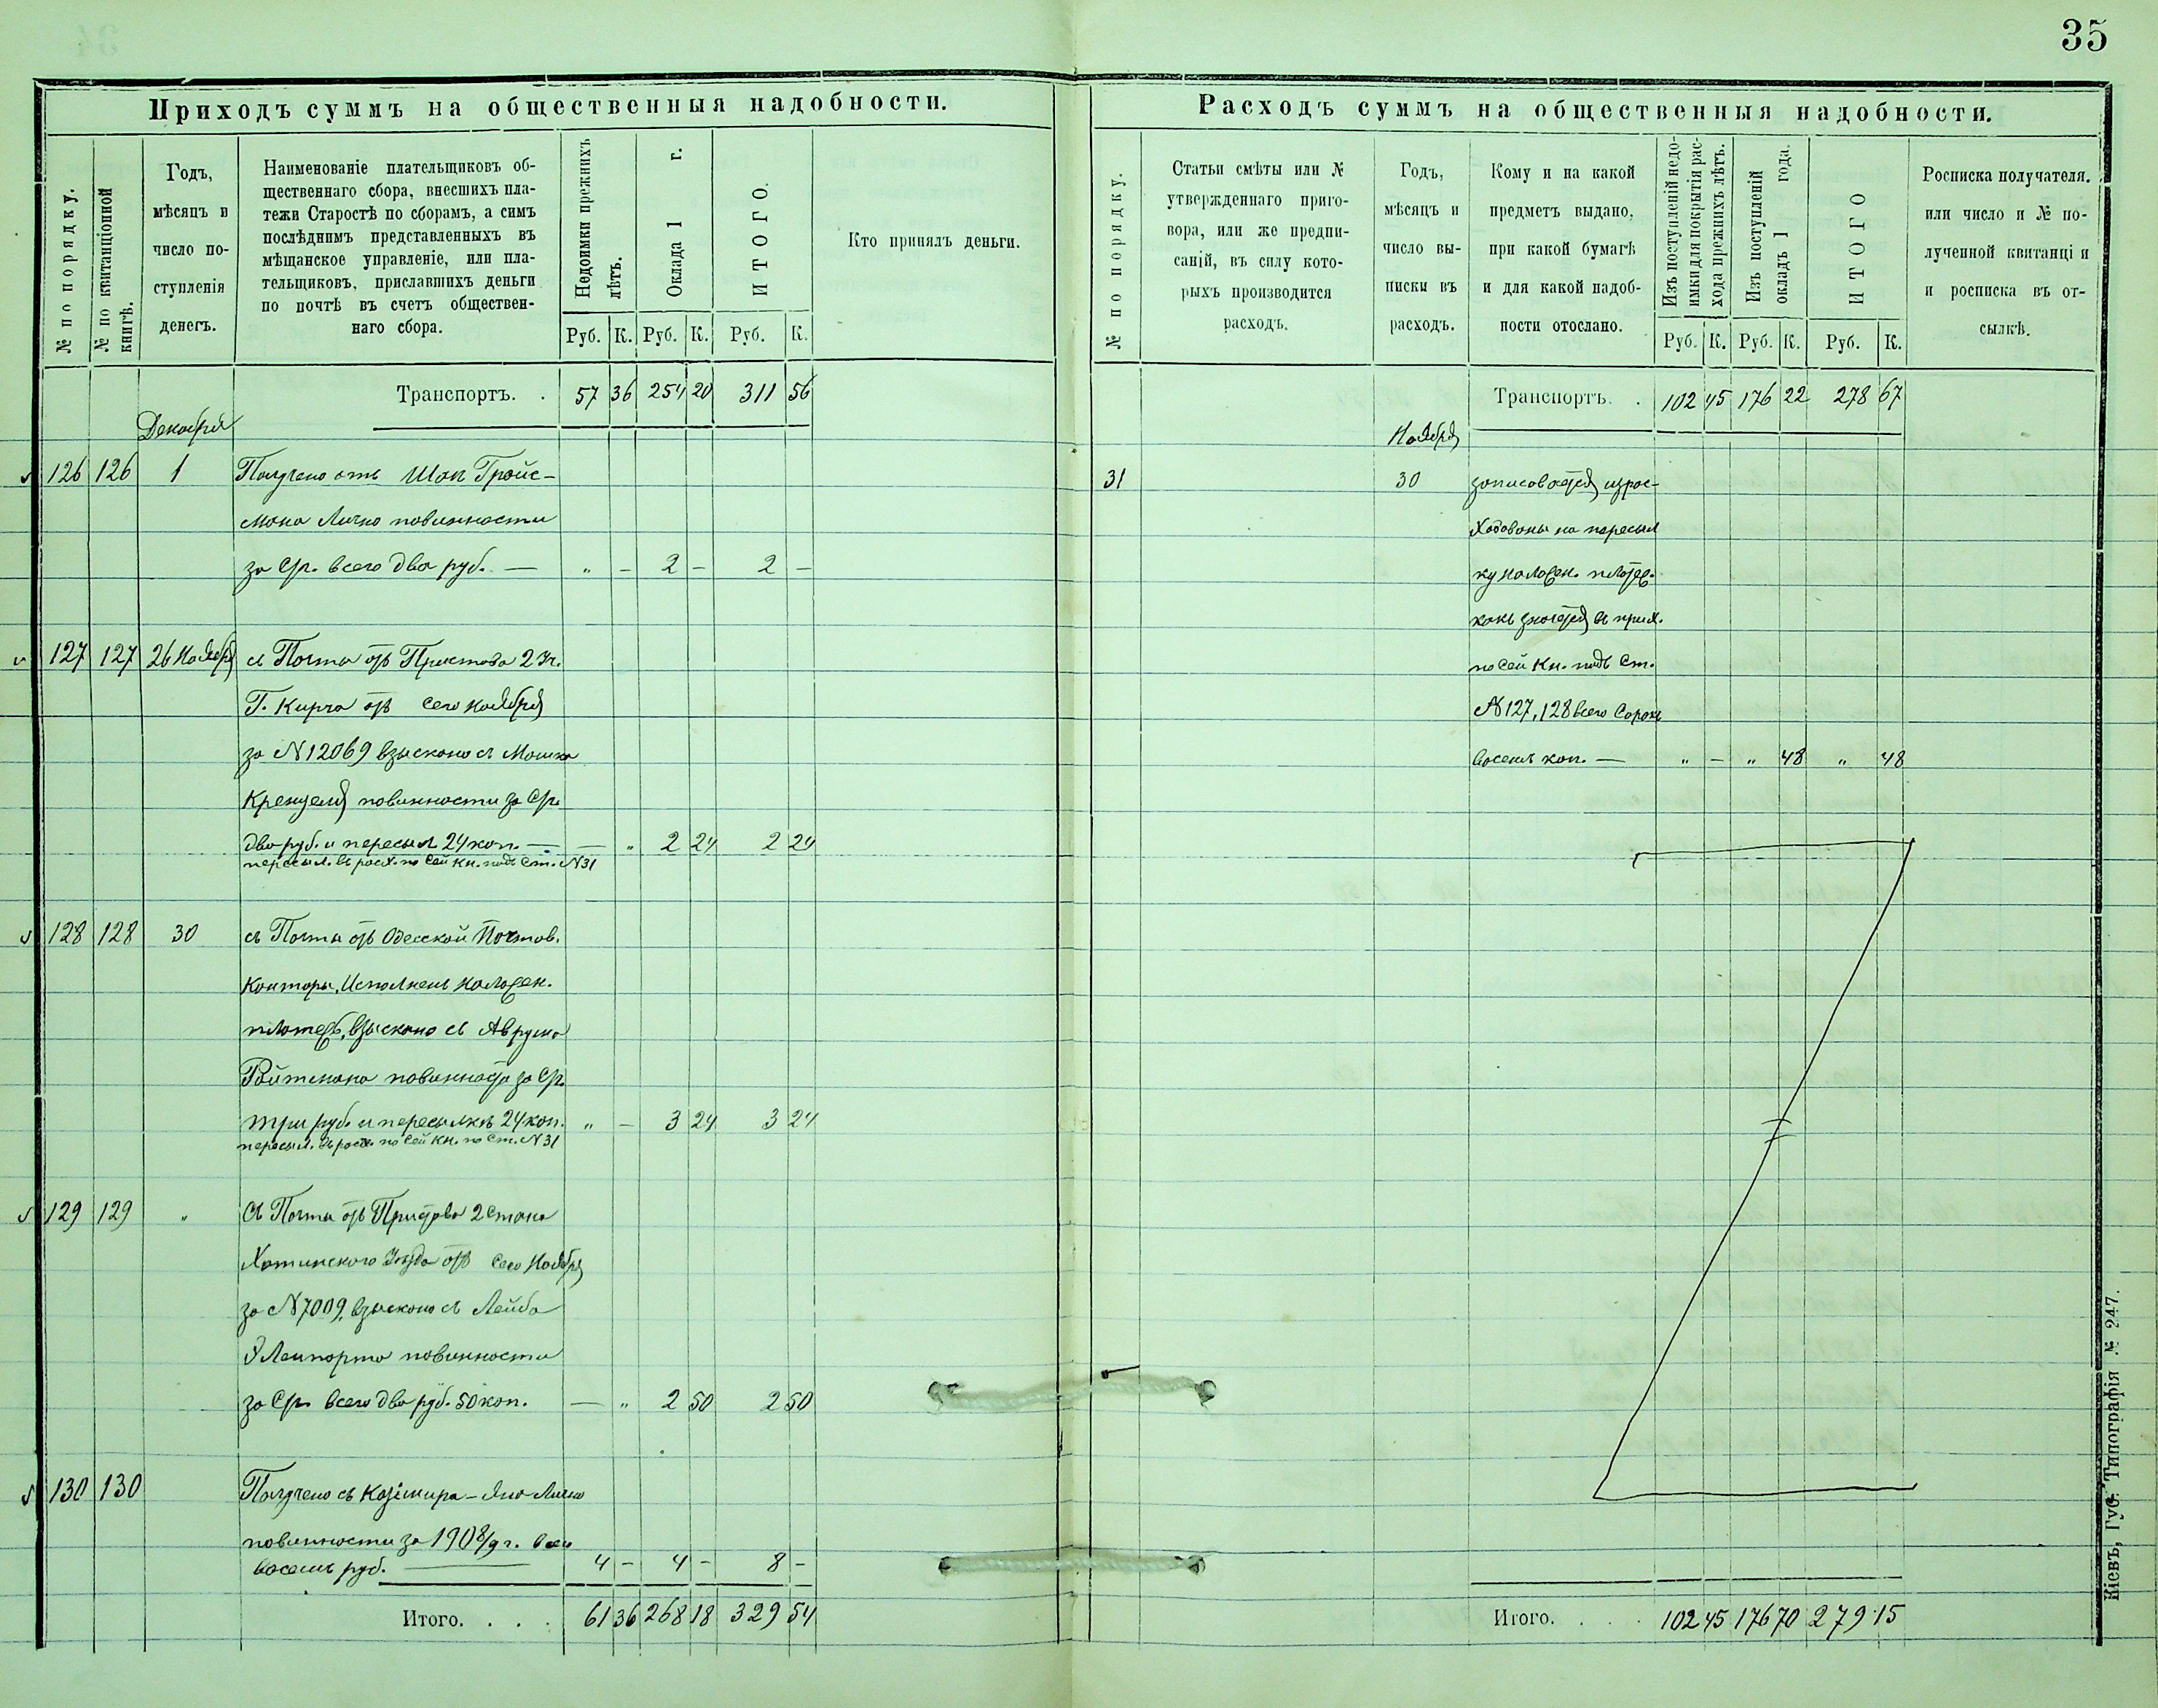 35
Приходъ суммъ на общественныя надобности.
№ по порядку.
№ по квитанціонной
книгѣ.
Годъ,
мѣсяцъ и
число по-
ступленія
денегъ.
Наименованіе плательщиковъ об-
щественнаго сбора, внесшихъ пла-
тежи Старостѣ по сборамъ, а симъ
послѣднимъ представленныхъ въ
мѣщанское управленіе, или пла-
тельщиковъ, приславшихъ деньги
по почтѣ въ счетъ обществен-
наго сбора.
Недоимки прежнихъ
лѣтъ.
Оклада 1 г.
ИТОГО.
Руб. К. Руб. К. Руб. К.
Кто принялъ деньги.
Транспортъ. . 57 36 254 20 311 56
Декабря
126 126 1 Получено отъ Шаи Гройс-
мана Лично повинности
за Ср. всего два руб. — " – 2 – 2 –
127 127 26 Ноября съ Почты отъ Пристава 2 Уч.
Г. отъ сего ноября
за № 12069 взыскано съ Мошка
Кренделя повинности за Ср.
два руб. и пересыл 24 коп. — — " 2 24 2 24
пересыл. въ расх. по сей кн. подъ ст. № 31
128 128 30 съ Почты отъ Одесской Почтов.
Конторы, Исполнен наложен.
платеж, взыскано съ Аврума
Ройтмана повинности за Ср.
три руб. и пересылкъ 24 коп. " – 3 24 3 24
пересыл. въ расх. по сей кн. по ст. № 31
129 129 " Съ Почты отъ Пристава 2 Стана
Хотинского Уѣзда отъ сего Ноября
за № 7009, взыскано съ Лейба
повинности
за Ср. всего два руб. 50 коп. — " 2 50 2 50
130 130 Получено съ Казимира Лично
повинности за 1908/9 г. всего
восемь руб. 4 – 4 – 8 –
Итого. . . . 61 36 268 18 329 54
Расходъ суммъ на общественныя надобности.
№ по порядку.
Статьи смѣты или №
утвержденнаго приго-
вора, или же предпи-
саній, въ силу кото-
рыхъ производится
расходъ.
Годъ,
мѣсяцъ и
число вы-
писки въ
расходъ.
Кому и на какой
предметъ выдано,
при какой бумагѣ
и для какой надоб-
ности отослано.
Изъ поступленій недо-
имки для покрытія рас-
хода прежнихъ лѣтъ.
Изъ поступленій
окладъ 1 года.
ИТОГО
Руб. К. Руб. К. Руб. К.
Росписка получателя.
или число и № по-
лученной квитанціи
и росписка въ от-
сылкѣ.
Транспортъ. . 102 45 176 22 278 67
Ноября
31 30 записовается израс-
ходованы на пересыл
ку наложен. платеж.
какъ значется въ прих.
по сей Кн. подъ Ст.
№ 127, 128 всего сорокъ
восемь коп. — " – " 48 " 48
Итого. . . . 102 45 176 70 279 15
Кіевъ, Губ. Типографія № 247.